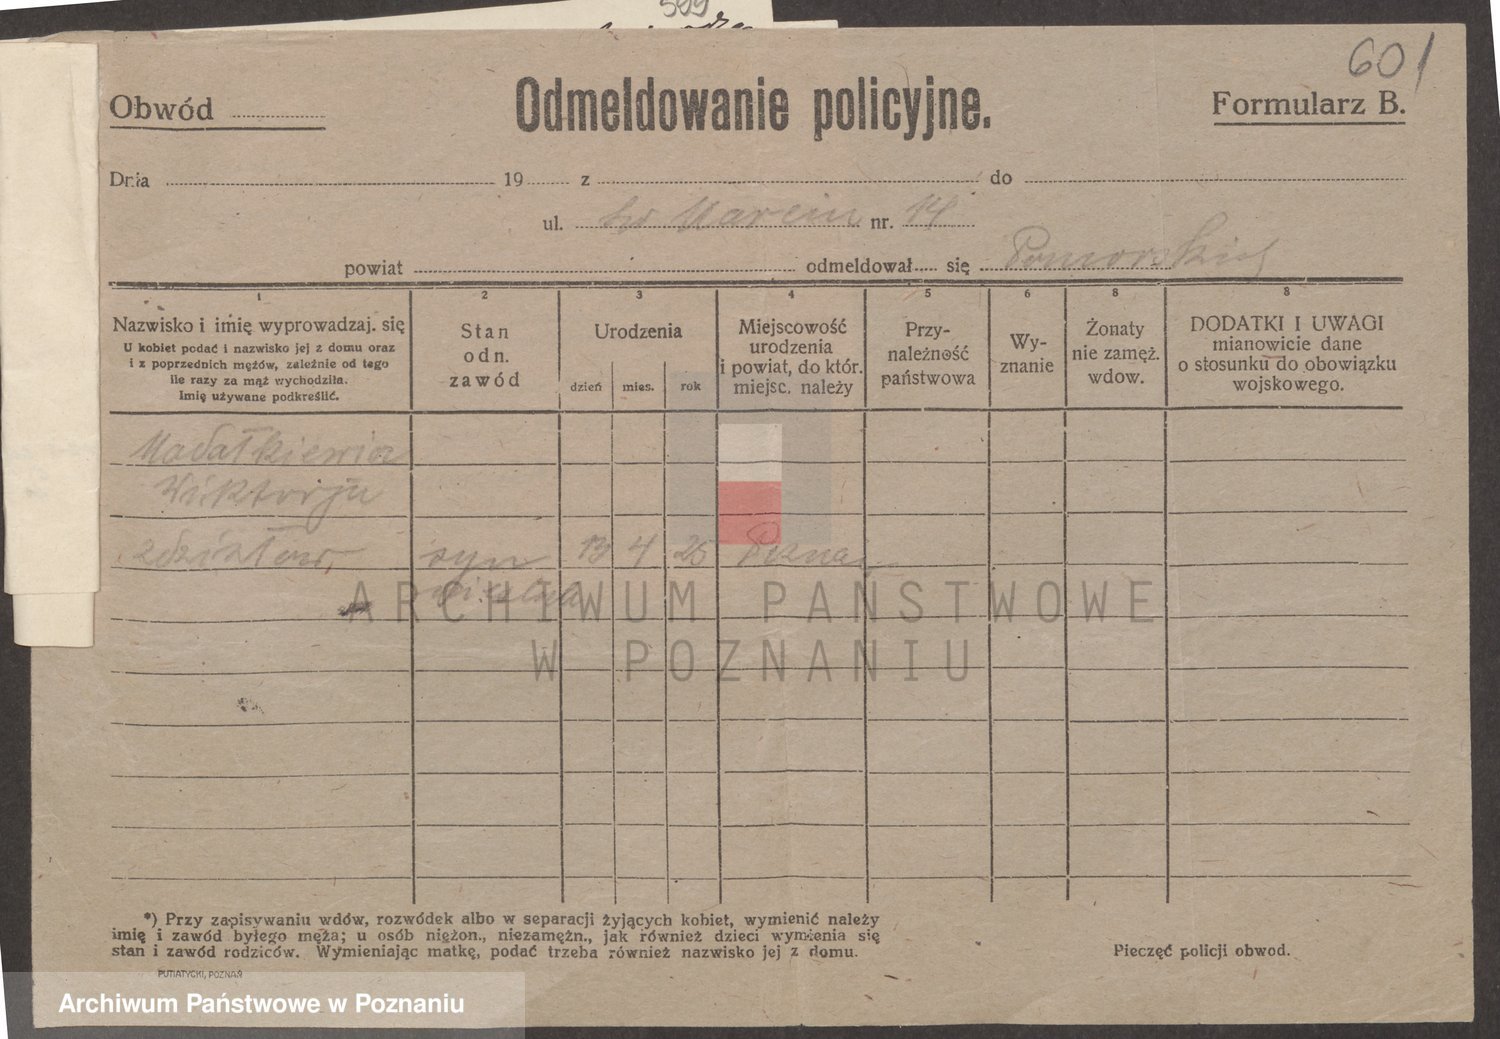 599
601
Obwód
Odmeldowanie policyjne.
Formularz B.
Dnia 19 z do
ul. św Marcin nr. 14
powiat odmeldował się Pomorskich
1 2 3 4 5 6 8 8
Nazwisko i imię wyprowadzaj. się
U kobiet podać i nazwisko jej z domu oraz
i z poprzednich mężów, zależnie od tego
ile razy za mąż wychodziła.
Imię używane podkreślić.
Stan
odn.
zawód
Urodzenia
dzień mies. rok
Miejscowość
urodzenia
i powiat, do któr.
miejsc. należy
Przy-
należność
państwowa
Wy-
znanie
Żonaty
nie zamęż.
wdow.
DODATKI I UWAGI
mianowicie dane
o stosunku do obowiązku
wojskowego.
Wiktorju
Zdzisław syn 13 4 25 Poznań
ARCHIWUM PAŃSTWOWE
W POZNANIU
*) Przy zapisywaniu wdów, rozwódek albo w separacji żyjących kobiet, wymienić należy
imię i zawód byłego męża; u osób nieżon., niezamężn., jak również dzieci wymienia się
stan i zawód rodziców. Wymieniając matkę, podać trzeba również nazwisko jej z domu.
Pieczęć policji obwod.
PUTIATYCKI, POZNAŃ
Archiwum Państwowe w Poznaniu